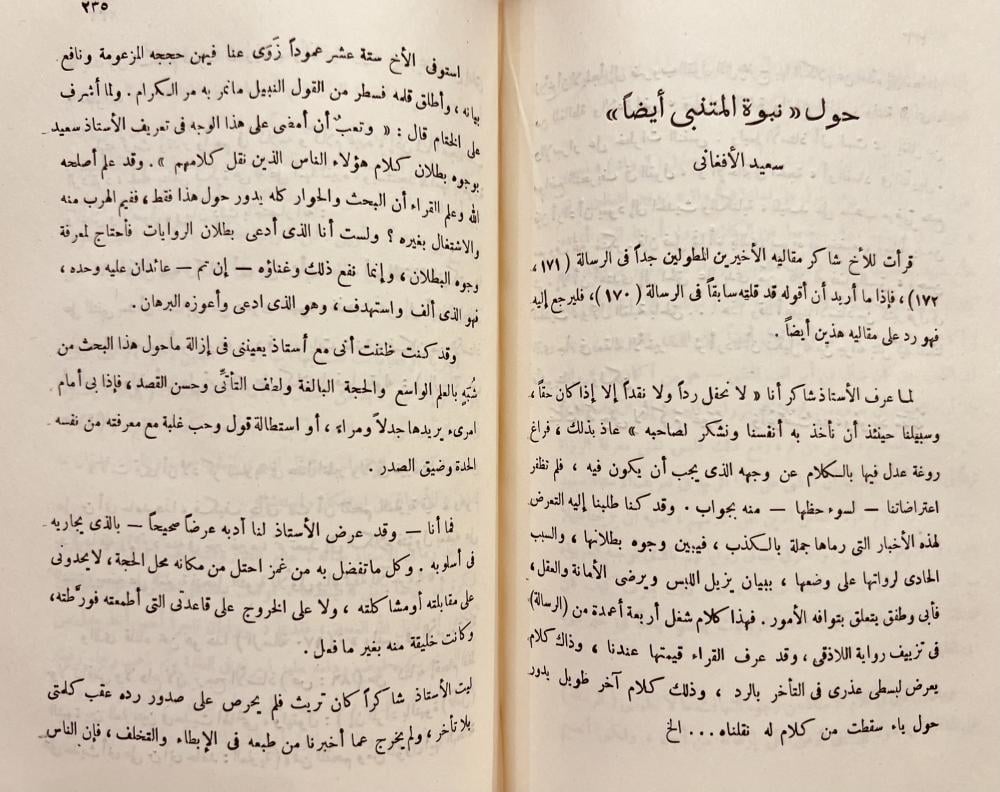 حول « نبوة المتنبى أيضاً »
سعيد الأفغانى
قرأت للأخ شاكر مقاليه الأخيرين المطولين جداً فى الرسالة ( ١٧١ ،
١٧٢ ) ، فإذا ما أريد أن أقوله قد قلته سابقاً فى الرسالة ( ١٧٠ ) ، فليرجع إليه
فهو رد على مقاليه هذين أيضاً .
لما عرف الأستاذ شاكر أنا « لا نحفل رداً ولا نقداً إلا إذا كان حقاً ،
وسبيلنا حينئذ أن نأخذ به أنفسنا ونشكر لصاحبه » عاذ بذلك ، فراغ
روغة عدل فيها بالكلام عن وجهه الذى يجب أن يكون فيه ، فلم تظفر
اعتراضاتنا — لسوء حظها — منه بجواب . وقد كنا طلبنا إليه التعرض
لهذه الأخبار التى رماها جملة بالكذب ، فيبين وجوه بطلانها ، والسبب
الحادى لرواتها على وضعها ، ببيان يزيل اللبس ويرضى الأمانة والعقل ،
فأبى وطفق يتعلق بتوافه الأمور . فهذا كلام شغل أربعة أعمدة من (الرسالة)
فى تزييف رواية اللاذقى ، وقد عرف القراء قيمتها عندنا ، وذاك كلام
يعرض لبسطى عذرى فى التأخر بالرد ، وذلك كلام آخر طويل يدور
حول ياء سقطت من كلام له نقلناه ... الخ
٢٣٥
استوفى الأخ ستة عشر عموداً زَوَى عنا فيهن حججه المزعومة ونافع
بيانه ، وأطلق قلمه فسطر من القول النبيل مانمر به مر الكرام . ولما أشرف
على الختام قال : « وتعبٌ أن أمضى على هذا الوجه فى تعريف الأستاذ سعيد
بوجوه بطلان كلام هؤلاء الناس الذين نقل كلامهم » . وقد علم أصلحه
الله وعلم القراء أن البحث والحوار كله يدور حول هذا فقط ، ففيم الهرب منه
والاشتغال بغيره ؟ ولست أنا الذى أدعى بطلان الروايات فأحتاج لمعرفة
وجوه البطلان ، وإنما نفع ذلك وغناؤه — إن تم — عائدان عليه وحده ،
فهو الذى ألف واستهدف ، وهو الذى ادعى وأعوزه البرهان .
وقد كنت ظننت أنى مع أستاذ يعيننى فى إزالة ماحول هذا البحث من
شُبَهٍ بالعلم الواسع والحجة البالغة ولطف التأتِّى وحسن القصد ، فإذا بى أمام
امرىء يريدها جدلاً ومراء ، أو استطالة قول وحب غلبة مع معرفته من نفسه
الحدة وضيق الصدر .
فما أنا — وقد عرض الأستاذ لنا أدبه عرضاً صحيحاً — بالذى يجاريه
فى أسلوبه . وكل ماتفضل به من غمز احتل من مكانه محل الحجة ، لا يحدونى
على مقابلته أومشاكلته ، ولا على الخروج على قاعدتى التى أطمعته فورَّطته ،
وكانت خليقة منه بغير ما فعل .
ليت الأستاذ شاكراً كان تريث فلم يحرص على صدور رده عقب كلمتى
بلا تأخر ، ولم يخرج عما أخبرنا من طبعه فى الإبطاء والتخلف ، فإن الناس